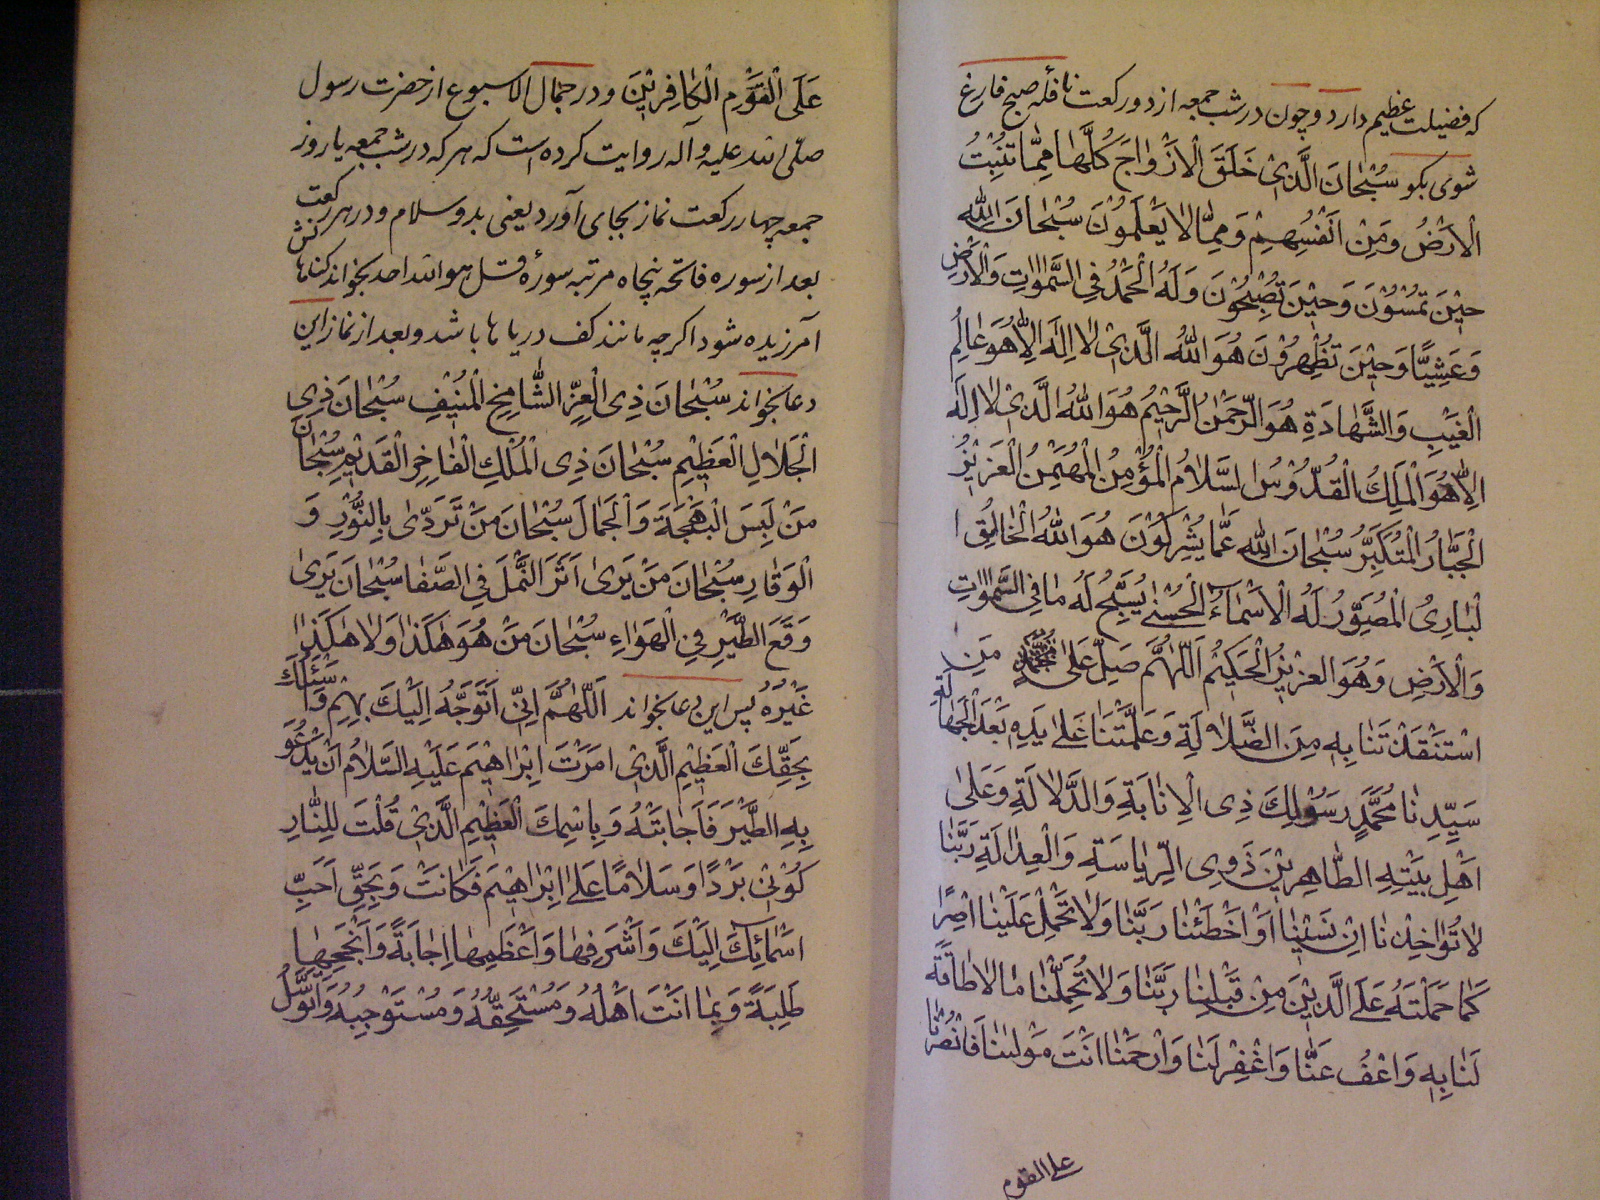 که فضیلت عظیم دارد و چون در شب جمعه از دو رکعت نافله صبح فارغ
شوی بکو سُبْحٰانَ الَّذِیْ خَلَقَ الْاَزْوٰاجَ کُلَّهٰا مِمّٰا تُنْبِتُ
الْاَرْضُ وَمِنْ اَنْفُسِهِمْ وَمِمّٰا لٰا یَعْلَمُوْنَ سُبْحٰانَ اللّٰهِ
حِیْنَ تُمْسُوْنَ وَحِیْنَ تُصْبِحُوْنَ وَلَهُ الْحَمْدُ فِی السَّمٰوٰاتِ وَالْاَرْضِ
وَعَشِیًّا وَحِیْنَ تُظْهِرُوْنَ هُوَ اللّٰهُ الَّذِیْ لٰا اِلٰهَ اِلّٰا هُوَ عٰالِمُ
الْغَیْبِ وَالشَّهٰادَةِ هُوَ الرَّحْمٰنُ الرَّحِیْمُ هُوَ اللّٰهُ الَّذِیْ لٰا اِلٰهَ
اِلّٰا هُوَ الْمَلِكُ الْقُدُّوْسُ السَّلٰامُ الْمُؤْمِنُ الْمُهَیْمِنُ الْعَزِیْزُ
الْجَبّٰارُ الْمُتَکَبِّرُ سُبْحٰانَ اللّٰهِ عَمّٰا یُشْرِکُوْنَ هُوَ اللّٰهُ الْخٰالِقُ ا
لْبٰارِیُ الْمُصَوِّرُ لَهُ الْاَسْمٰآءُ الْحُسْنٰی یُسَبِّحُ لَهُ مٰا فِی السَّمٰوٰاتِ
وَالْاَرْضِ وَهُوَ الْعَزِیْزُ الْحَکِیْمُ اَللّٰهُمَّ صَلِّ عَلٰی مُحَمَّدٍ مَنِ
اسْتَنْقَذْتَنٰا بِهِ مِنَ الضَّلٰالَةِ وَعَلَّمْتَنٰا عَلٰی یَدِهِ بَعْدَ الْجَهٰالَةِ
سَیِّدِنٰا مُحَمَّدٍ رَسُوْلِكَ ذِی الْاِنٰابَةِ وَالدَّلٰالَةِ وَعَلٰی
اَهْلِ بَیْتِهِ الطّٰاهِرِیْنَ ذَوِی الرِّیٰاسَةِ وَالْعِدٰالَةِ رَبَّنٰا
لٰا تُؤٰاخِذْنٰا اِنْ نَسِیْنٰا اَوْ اَخْطَئْنٰا رَبَّنٰا وَلٰا تَحْمِلْ عَلَیْنٰا اِصْرًا
کَمٰا حَمَلْتَهُ عَلَی الَّذِیْنَ مِنْ قَبْلِنٰا رَبَّنٰا وَلٰا تُحَمِّلْنٰا مٰا لٰا طٰاقَةَ
لَنٰا بِهِ وَاعْفُ عَنّٰا وَاغْفِرْ لَنٰا وَارْحَمْنٰا اَنْتَ مَوْلٰینٰا فَانْصُرْنٰا
علی القوم
عَلَی الْقَوْمِ الْکٰافِرِیْنَ و در جمال الاسبوع از حضرت رسول
صلّی الله علیه و آله روایت کرده است که هر که در شب جمعه یا روز
جمعه چهار رکعت نماز بجای آورد یعنی بدو سلام و در هر رکعت
بعد از سوره فاتحه پنجاه مرتبه سورهٔ قل هو الله احد بخواند کناهانش
آمرزیده شود اکرچه مانند کف دریاها باشد و بعد از نماز این
دعا بخواند سُبْحٰانَ ذِی الْعِزِّ الشّٰامِخِ الْمُنِیْفِ سُبْحٰانَ ذِی
الْجَلٰالِ الْعَظِیْمِ سُبْحٰانَ ذِی الْمُلْكِ الْفٰاخِرِ الْقَدِیْمِ سُبْحٰانَ
مَنْ لَبِسَ الْبَهْجَةَ وَالْجَمٰالَ سُبْحٰانَ مَنْ تَرَدّٰی بِالنُّوْرِ وَ
الْوَقٰارِ سُبْحٰانَ مَنْ یَرٰی اَثَرَ النَّمْلِ فِی الصَّفٰا سُبْحٰانَ یَرٰی
وَقَعَ الطَّیْرِ فِی الْهَوٰاءِ سُبْحٰانَ مَنْ هُوَ هٰکَذٰا وَلٰا هٰکَذٰا
غَیْرُهُ پس این دعا بخواند اَللّٰهُمَّ اِنِّی اَتَوَجَّهُ اِلَیْكَ بِهِمْ وَاَسْئَلُكَ
بِحَقِّكَ الْعَظِیْمِ الَّذِیْ اَمَرْتَ اِبْرٰاهِیْمَ عَلَیْهِ السَّلٰامُ اَنْ یَدْعُوَ
بِهِ الطَّیْرَ فَاَجٰابَتْهُ وَبِاسْمِكَ الْعَظِیْمِ الَّذِیْ قُلْتَ لِلنّٰارِ
کُوْنِیْ بَرْدًا وَسَلٰامًا عَلٰی اِبْرٰاهِیْمَ فَکٰانَتْ وَبِحَقِّ اَحَبِّ
اَسْمٰائِكَ اِلَیْكَ وَاَشْرَفِهٰا وَاَعْظَمِهٰا اِجٰابَةً وَاَنْجَحِهٰا
طَلِبَةً وَبِمٰا اَنْتَ اَهْلُهُ وَمُسْتَحِقُّهُ وَمُسْتَوْجِبُهُ وَاَتَوَسَّلُ